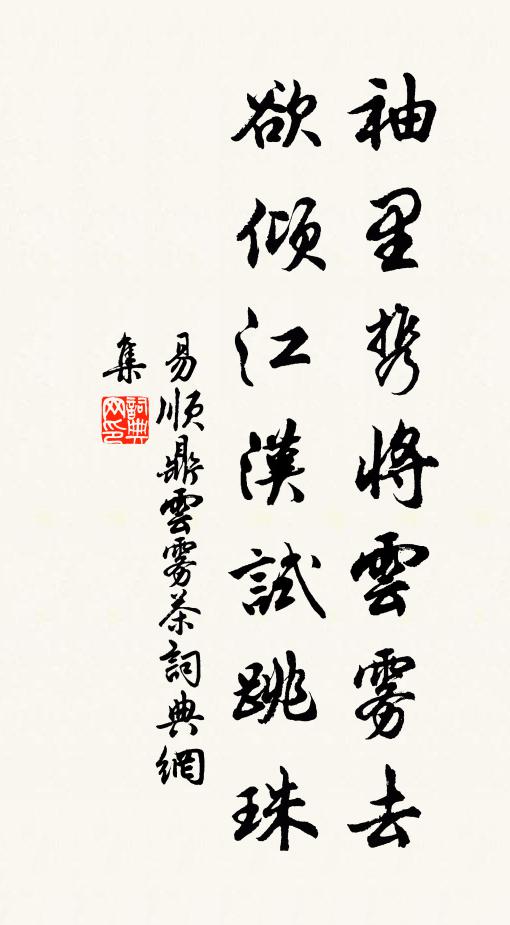 袖里携將雲雾去
欲倾江漢試跳珠
易順鼎雲雾茶詞典網
集
詞典
网印